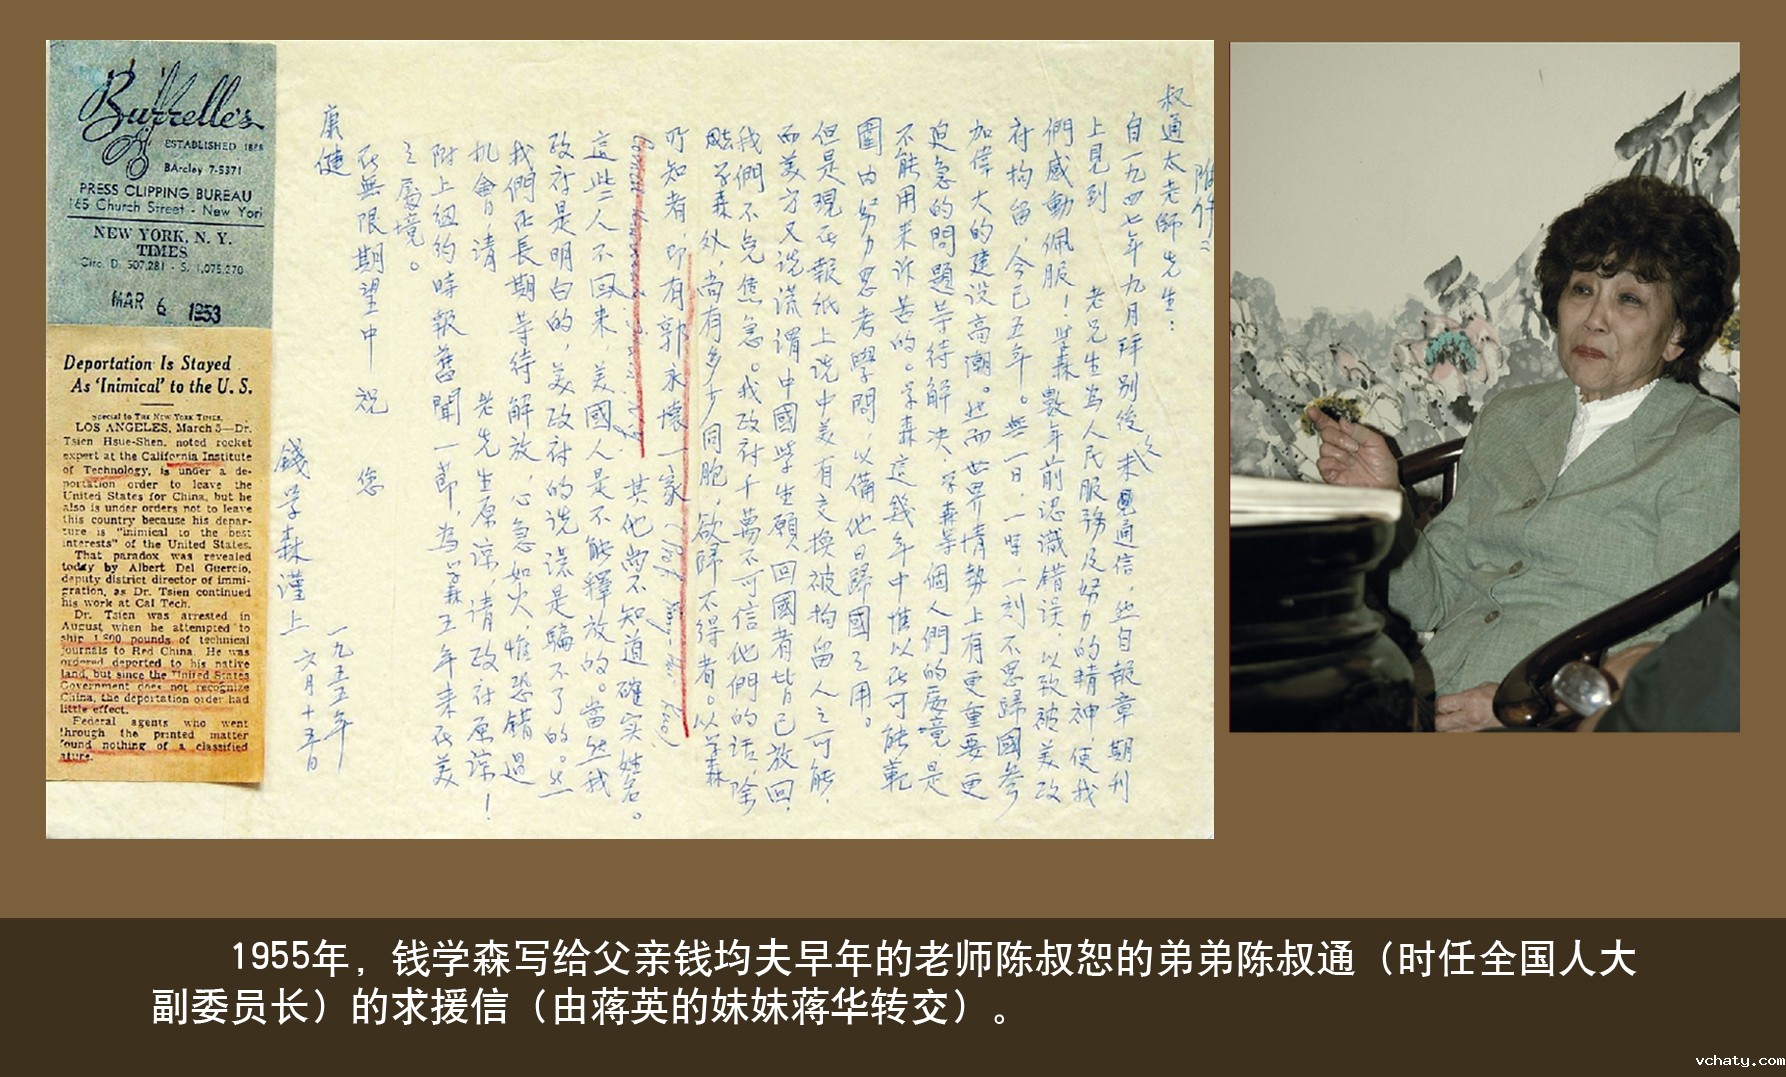 Burrelle's
ESTABLISHED 1888
BArcley 7-5371
PRESS CLIPPING BUREAU
165 Church Street - New York
NEW YORK, N. Y.
TIMES
Circ. D. 507,281 - S. 1,075,270
MAR 6 1953
Deportation Is Stayed
As 'Inimical' to the U. S.
Special to THE NEW YORK TIMES.
LOS ANGELES, March 5—Dr.
Tsien Hsue-Shen, noted rocket
expert at the California Institute
of Technology, is under a de-
portation order to leave the
United States for China, but he
also is under orders not to leave
this country because his depar-
ture is "inimical to the best
interests" of the United States.
That paradox was revealed
today by Albert Del Guercio,
deputy district director of immi-
gration, as Dr. Tsien continued
his work at Cal Tech.
Dr. Tsien was arrested in
August when he attempted to
ship 1,800 pounds of technical
journals to Red China. He was
ordered deported to his native
land, but since the United States
Government does not recognize
China, the deportation order had
little effect.
Federal agents who went
through the printed matter
found nothing of a classified
nature.
附件二
叔通太老師先生：
自一九四七年九月拜別後未通信，然自報章期刊
上見到 老先生為人民服務及努力的精神，使我
們感動佩服！學森數年前認識錯誤，以致被美政
府拘留，今已五年。無一日、一時、一刻不思歸國參
加偉大的建設高潮。然而世界情勢上有更重要更
迫急的問題等待解決，學森等個人們的處境，是
不能用來訴苦的。学森這幾年中惟以在可能範
圍內努力思考學問，以備他日歸國之用。
但是現在報紙上說中美有交換被拘留人之可能，
而美方又說謊謂中國學生願回國者皆已放回，
我們不免焦急。我政府千萬不可信他們的話，除
学森外，尚有多少同胞，欲歸不得者。以学森
所知者，即有郭永懷一家（Prof. Yung-Huai Kuo）
其他尚不知道確实姓名。
這些人不回來，美國人是不能釋放的。當然我
政府是明白的，美政府的說謊是騙不了的。然
我們在長期等待解放，心急如火，惟恐錯過
机會，请 老先生原諒，请政府原諒！
附上紐約時報舊聞一節，為学森五年来在美
之處境。
在無限期望中祝 您
康健
錢学森謹上
一九五五年
六月十五日
1955年，钱学森写给父亲钱均夫早年的老师陈叔恕的弟弟陈叔通（时任全国人大
副委员长）的求援信（由蒋英的妹妹蒋华转交）。
vchaty.com